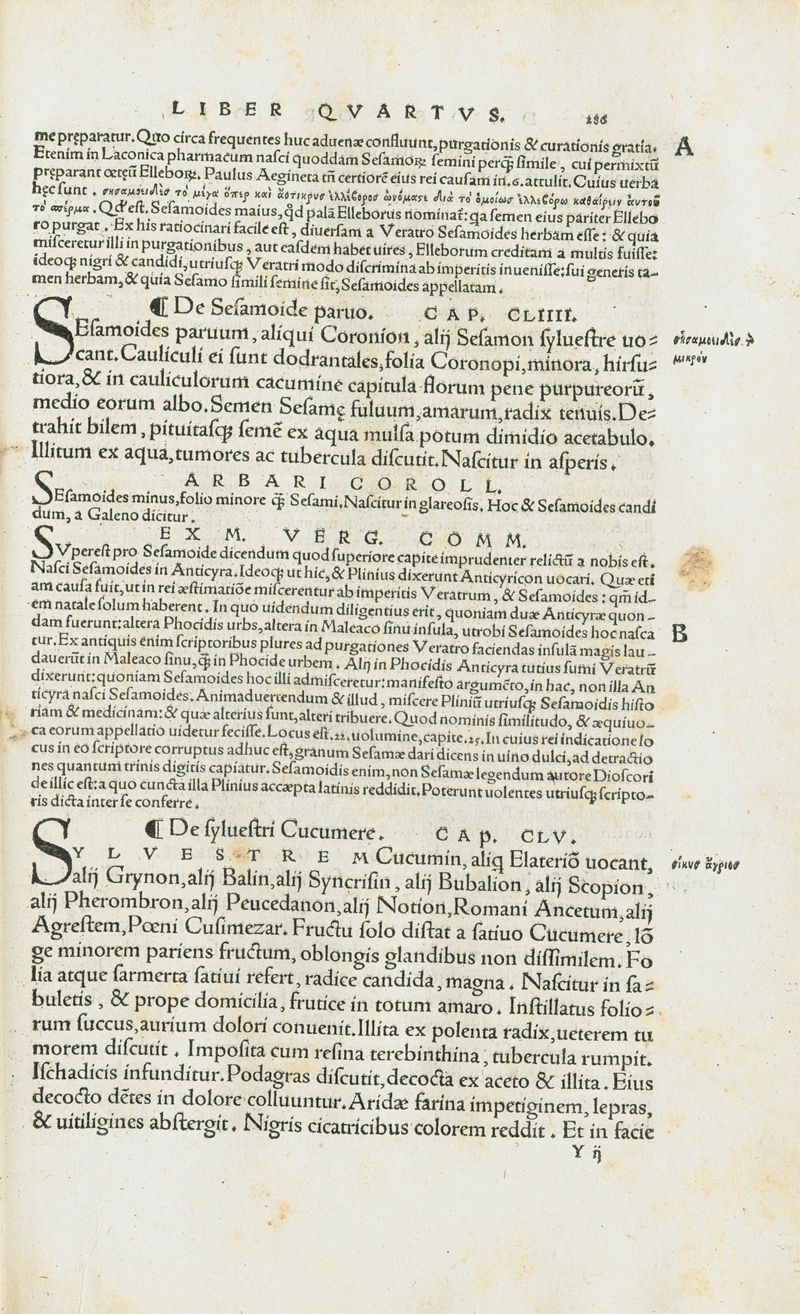 LIBER QVARTVS. 186
me pręparatur. Quo circa frequentes huc aduenæ confluunt, purgationis & curationis gratia. A
Etenim in Laconica pharmacum nasci quoddam Sesamoꝝ semini perq̃ simile, cui permixtũ
pręparant Elleboꝝ. Paulus Aegineta tñ certiorē eius rei causam in .6. attulit. Cuius uerba
hęc sunt. σησαμοειδὲσ τὸ μέγα ὅπερ καὶ
τὸ σπέρμα. Qd̃ est. Sesamoides maius, q̃d palã Elleborus nominat̃: qa semen eius pariter Ellebo
ro purgat. Ex his ratiocinari facile est, diuersam a Veratro Sesamoides herbam esse: & quia
misceretur illi in purgationibus, aut easdem habet uires, Elleborum creditam a multis fuisse:
ideoq; nigri & candidi, utriusq; Veratri modo discrimina ab imperitis inuenisse: sui generis ta-
men herbam, & quia Sesamo simili semine sit, Sesamoides appellatam.
¶ De Sesamoide paruo. CAP. CLIIII.
SEsamoides paruum, aliqui Coronion, alij Sesamon syluestre uo- σησαμοειδὲσ τὸ
cant. Cauliculi ei sunt dodrantales, folia Coronopi, minora, hirsu- μικρὸν
tiora, & in cauliculorum cacumine capitula florum pene purpureorũ,
medio eorum albo. Semen Sesamę fuluum, amarum, radix tenuis. De-
trahit bilem, pituitasq; semē ex aqua mulsa potum dimidio acetabulo.
Illitum ex aqua, tumores ac tubercula discutit. Nascitur in asperis.
BARBARI COROLL.
SEsamoides minus, folio minore q̃ Sesami. Nascitur in glareosis. Hoc & Sesamoides candi
dum, a Galeno dicitur.
EX M. VERG. COMM.
SVperest pro Sesamoide dicendum quod superiore capite imprudenter relictũ a nobis est.
Nasci Sesamoides in Anticyra. Ideoq; ut hic, & Plinius dixerunt Anticyricon uocari. Quæ eti
am causa fuit, ut in rei æstimatiõe miscerentur ab imperitis Veratrum, & Sesamoides: qm̃ id-
em natale solum haberent. In quo uidendum diligentius erit, quoniam duæ Anticyræ quon-
dam fuerunt: altera Phocidis urbs, altera in Maleaco sinu insula, utrobi Sesamoides hoc nasca B
tur. Ex antiquis enim scriptoribus plures ad purgationes Veratro faciendas insulã magis lau-
dauerũt in Maleaco sinu, q̃ in Phocide urbem. Alij in Phocidis Anticyra tutius sumi Veratrũ
dixerunt: quoniam Sesamoides hoc illi admisceretur: manifesto argumēto, in hac, non illa An
ticyra nasci Sesamoides. Animaduertendum & illud, miscere Pliniũ utriusq; Sesamoidis histo
riam & medicinam: & quæ alterius sunt, alteri tribuere. Quod nominis similitudo, & æquiuo-
ca eorum appellatio uidetur fecisse. Locus est .22. uolumine, capite .25. In cuius rei indicatione lo
cus in eo scriptore corruptus adhuc est, granum Sesamæ dari dicens in uino dulci, ad detractio
nes quantum trinis digitis capiatur. Sesamoidis enim, non Sesamæ legendum autore Dioscori
de illic est: a quo cuncta illa Plinius accæpta latinis reddidit. Poterunt uolentes utriusq; scripto-
ris dicta inter se conferre.
¶ De syluestri Cucumere. CAP. CLV.
SYLVESTREM Cucumin, aliq Elateriõ uocant, σίκυσ ἄγριοσ
alij Grynon, alij Balin, alij Syncrisin, alij Bubalion, alij Scopion,
alij Pherombron, alij Peucedanon, alij Notion, Romani Ancetum, alij
Agrestem, Pœni Cusimezar. Fructu solo distat a satiuo Cucumere, lõ
ge minorem pariens fructum, oblongis glandibus non dissimilem. Fo
lia atque sarmerta satiui refert, radice candida, magna. Nascitur in sa-
buletis, & prope domicilia, frutice in totum amaro. Instillatus folio-
rum succus, aurium dolori conuenit. Illita ex polenta radix, ueterem tu
morem discutit. Imposita cum resina terebinthina, tubercula rumpit.
Ischadicis infunditur. Podagras discutit, decocta ex aceto & illita. Eius
decocto dētes in dolore colluuntur. Aridæ farina impetiginem, lepras,
& uitiligines abstergit. Nigris cicatricibus colorem reddit. Et in facie
Y ij